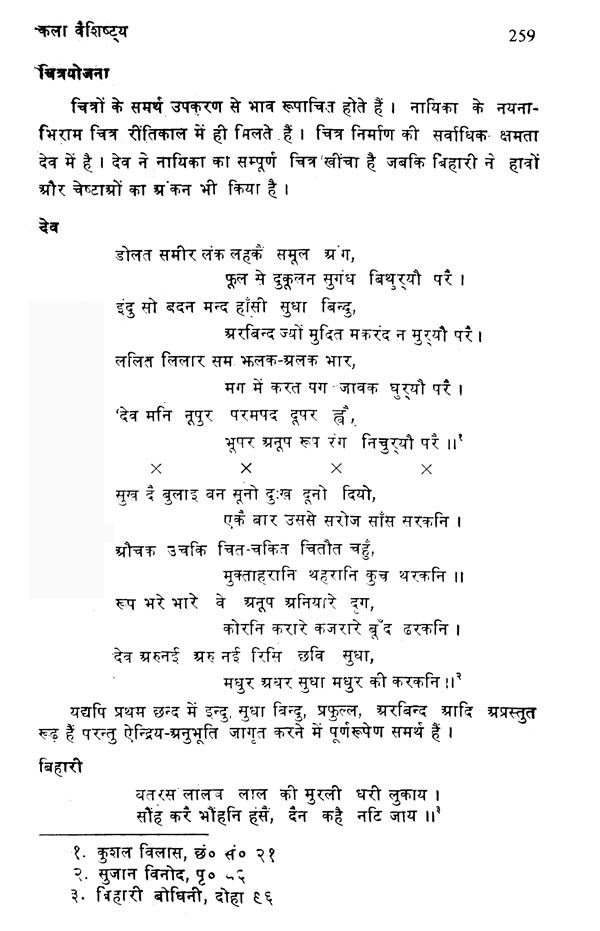 कला वैशिष्ट्य 259
चित्रयोजना
चित्रों के समर्थ उपकरण से भाव रूपाचित होते हैं । नायिका के नयना-
भिराम चित्र रीतिकाल में ही मिलते हैं । चित्र निर्माण की सर्वाधिक क्षमता
देव में है । देव ने नायिका का सम्पूर्ण चित्र खींचा है जबकि बिहारी ने हावों
और चेष्टाओं का अंकन भी किया है ।
देव
डोलत समीर लंक लहकैं समूल अंग,
फूल से दुकूलन सुगंध बिथुर्‌यौ परै ।
इंदु सो बदन मन्द हाँसी सुधा बिन्दु,
अरबिन्द ज्यों मुदित मकरंद न मुर्‌यौ परै ।
ललित लिलार सम झलक-अलक भार,
मग में करत पग जावक घुर्‌यौ परै ।
'देव मनि नूपुर परमपद दूपर ह्वै,
भूपर अनूप रूप रंग निचुर्‌यौ परै ॥१
× × × ×
सुख दै बुलाइ बन सूनो दुःख दूनो दियो,
एकै बार उससे सरोज साँस सरकनि ।
औचक उचकि चित-चकित चितौत चहुँ,
मुक्ताहरानि थहरानि कुच थरकनि ॥
रूप भरे भारे वे अनूप अनियारे दृग,
कोरनि करारे कजरारे बूँद ढरकनि ।
देव अरुनई अरु नई रिसि छवि सुधा,
मधुर अधर सुधा मधुर की करकनि ॥२
यद्यपि प्रथम छन्द में इन्दु, सुधा बिन्दु, प्रफुल्ल, अरबिन्द आदि अप्रस्तुत
रूढ़ हैं परन्तु ऐन्द्रिय-अनुभूति जागृत करने में पूर्णरूपेण समर्थ हैं ।
बिहारी
बतरस लालच लाल की मुरली धरी लुकाय ।
सौंह करै भौंहनि हंसैं, दैन कहै नटि जाय ॥३
१. कुशल विलास, छं० सं० २१
२. सुजान विनोद, पृ०
३. बिहारी बोधिनी, दोहा ९६